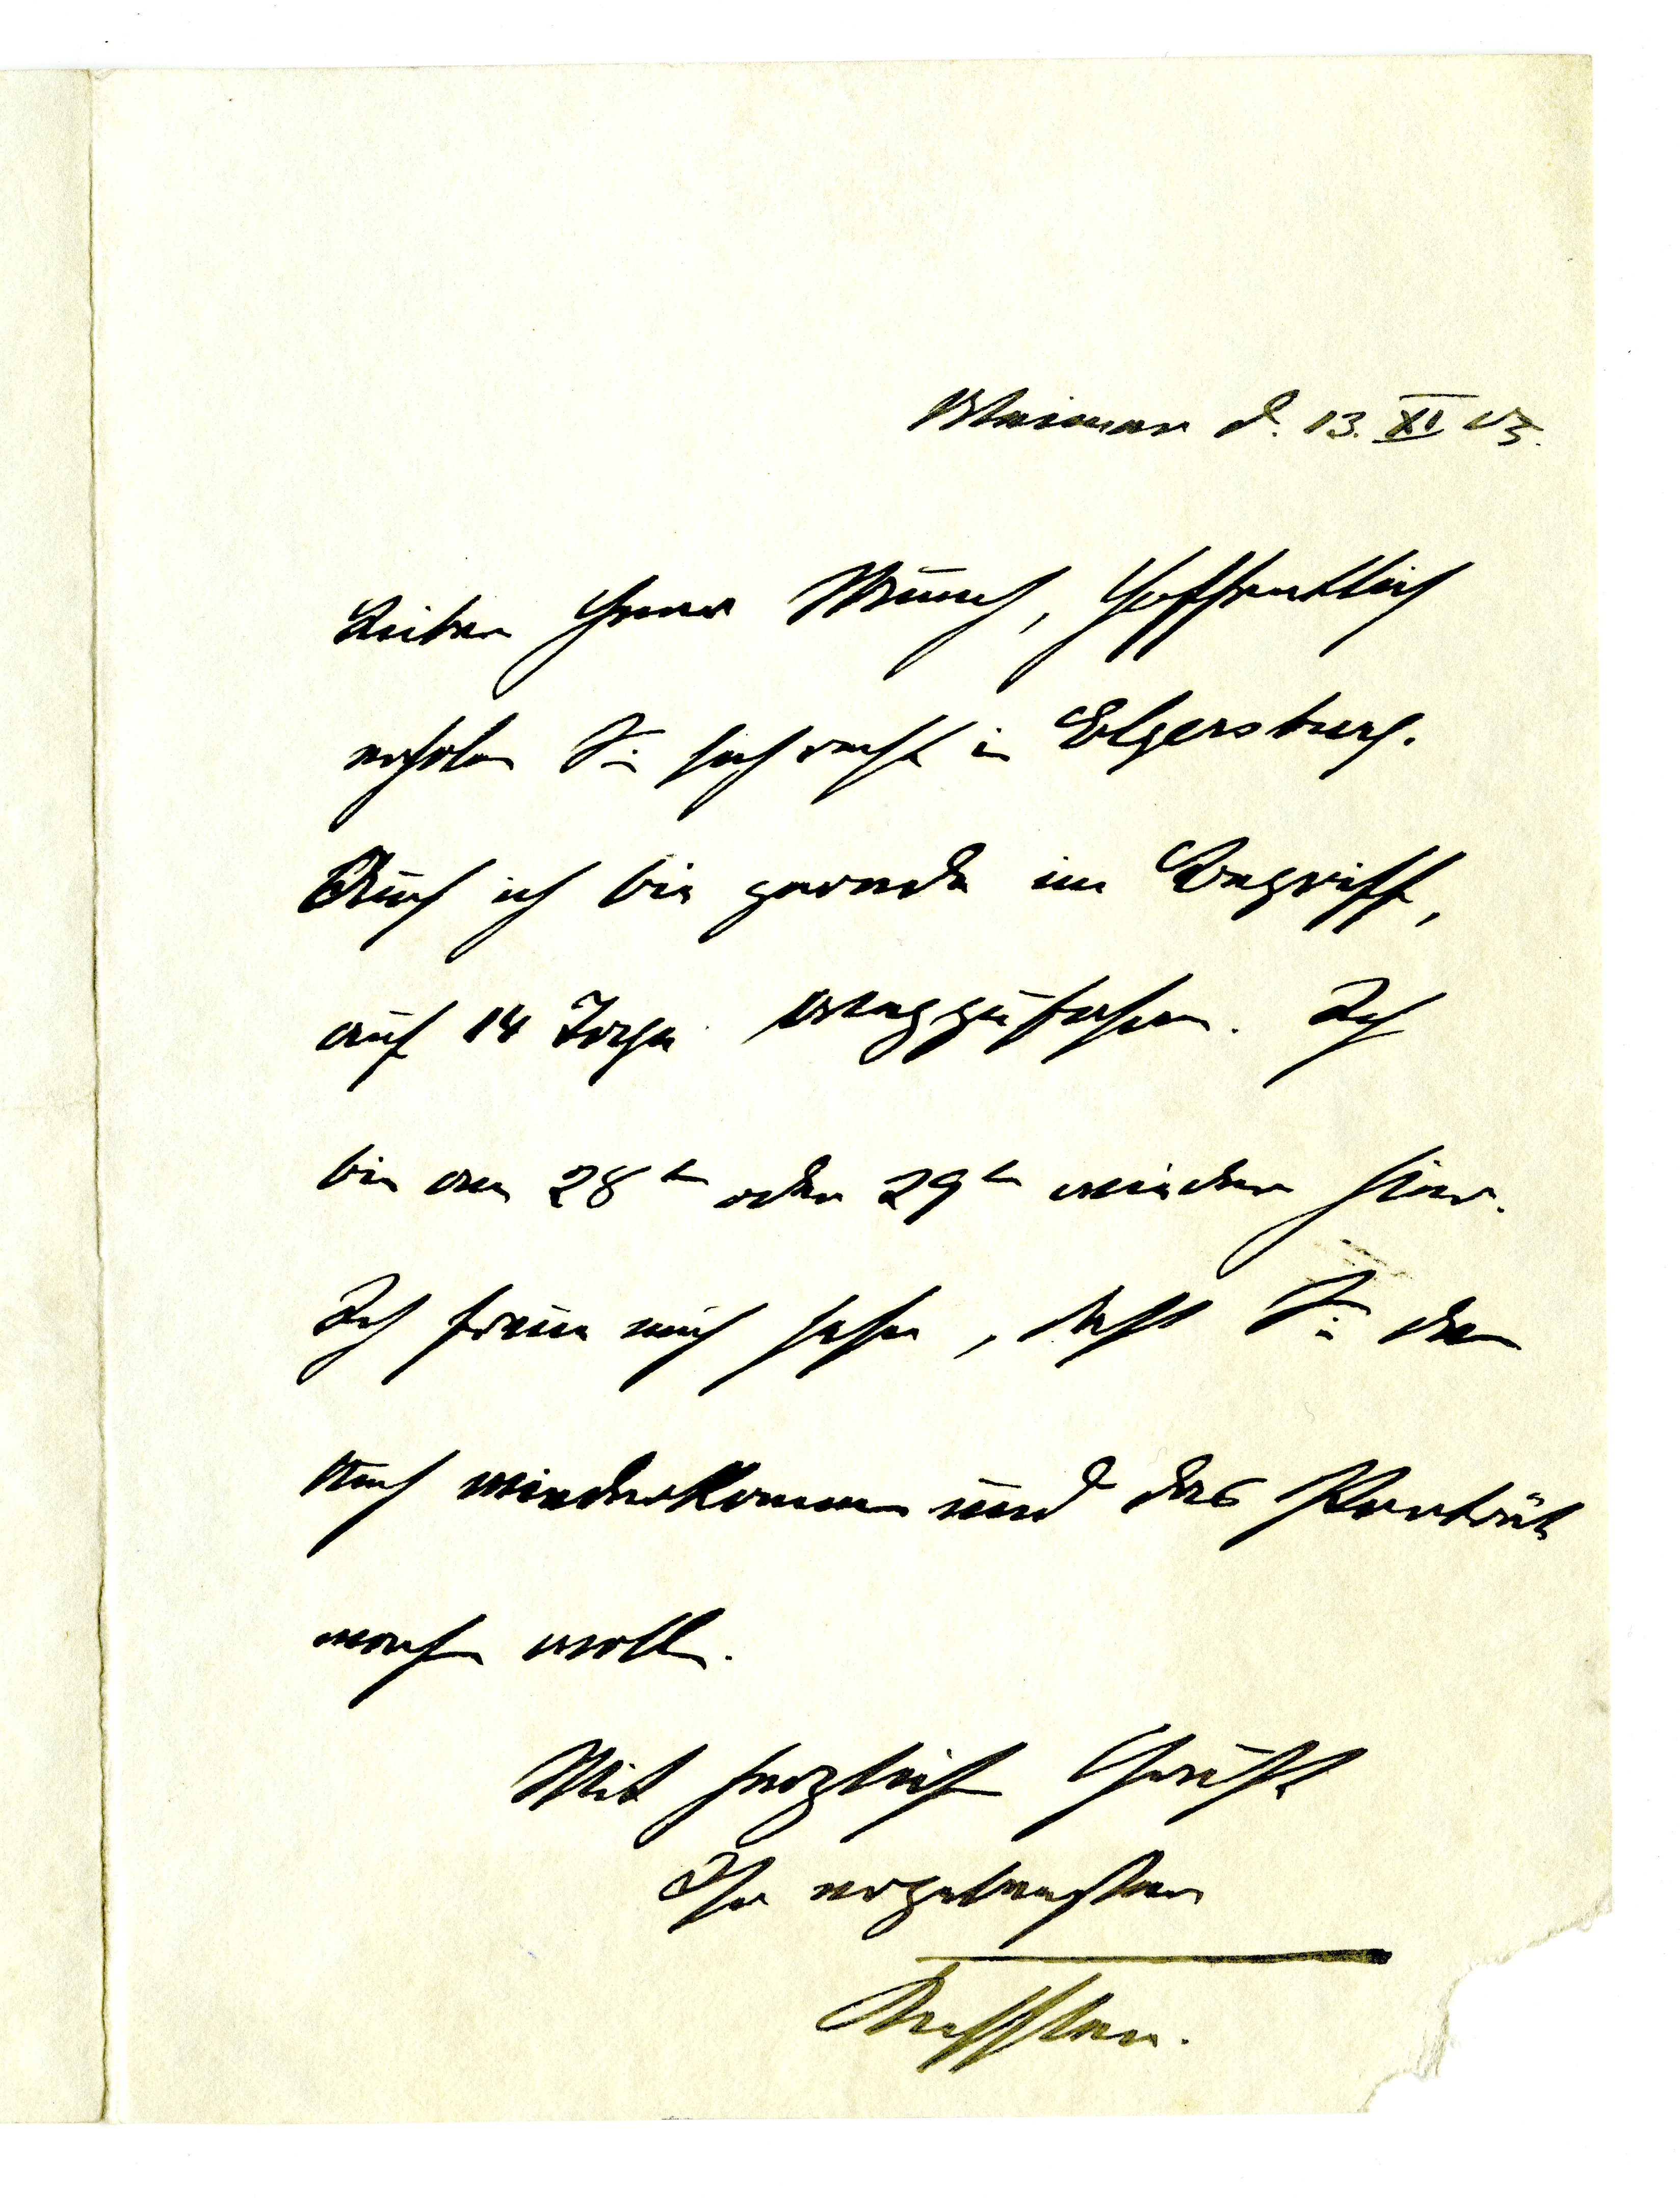 Weimar d. 13. XI 05.
Lieber Herr Munch, Hoffentlich
erholen Sie sich recht in Elgersburg.
Auch ich bin gerade im Begriff,
auf 14 Tage wegzufahren. Ich
bin am 28ten oder 29ten wieder hier.
Ich freue mich sehr, dass Sie dann
auch wiederkommen und das Porträt
machen wollen.
Mit herzlichen Grüßen
Ihr ergebenster
Kessler.